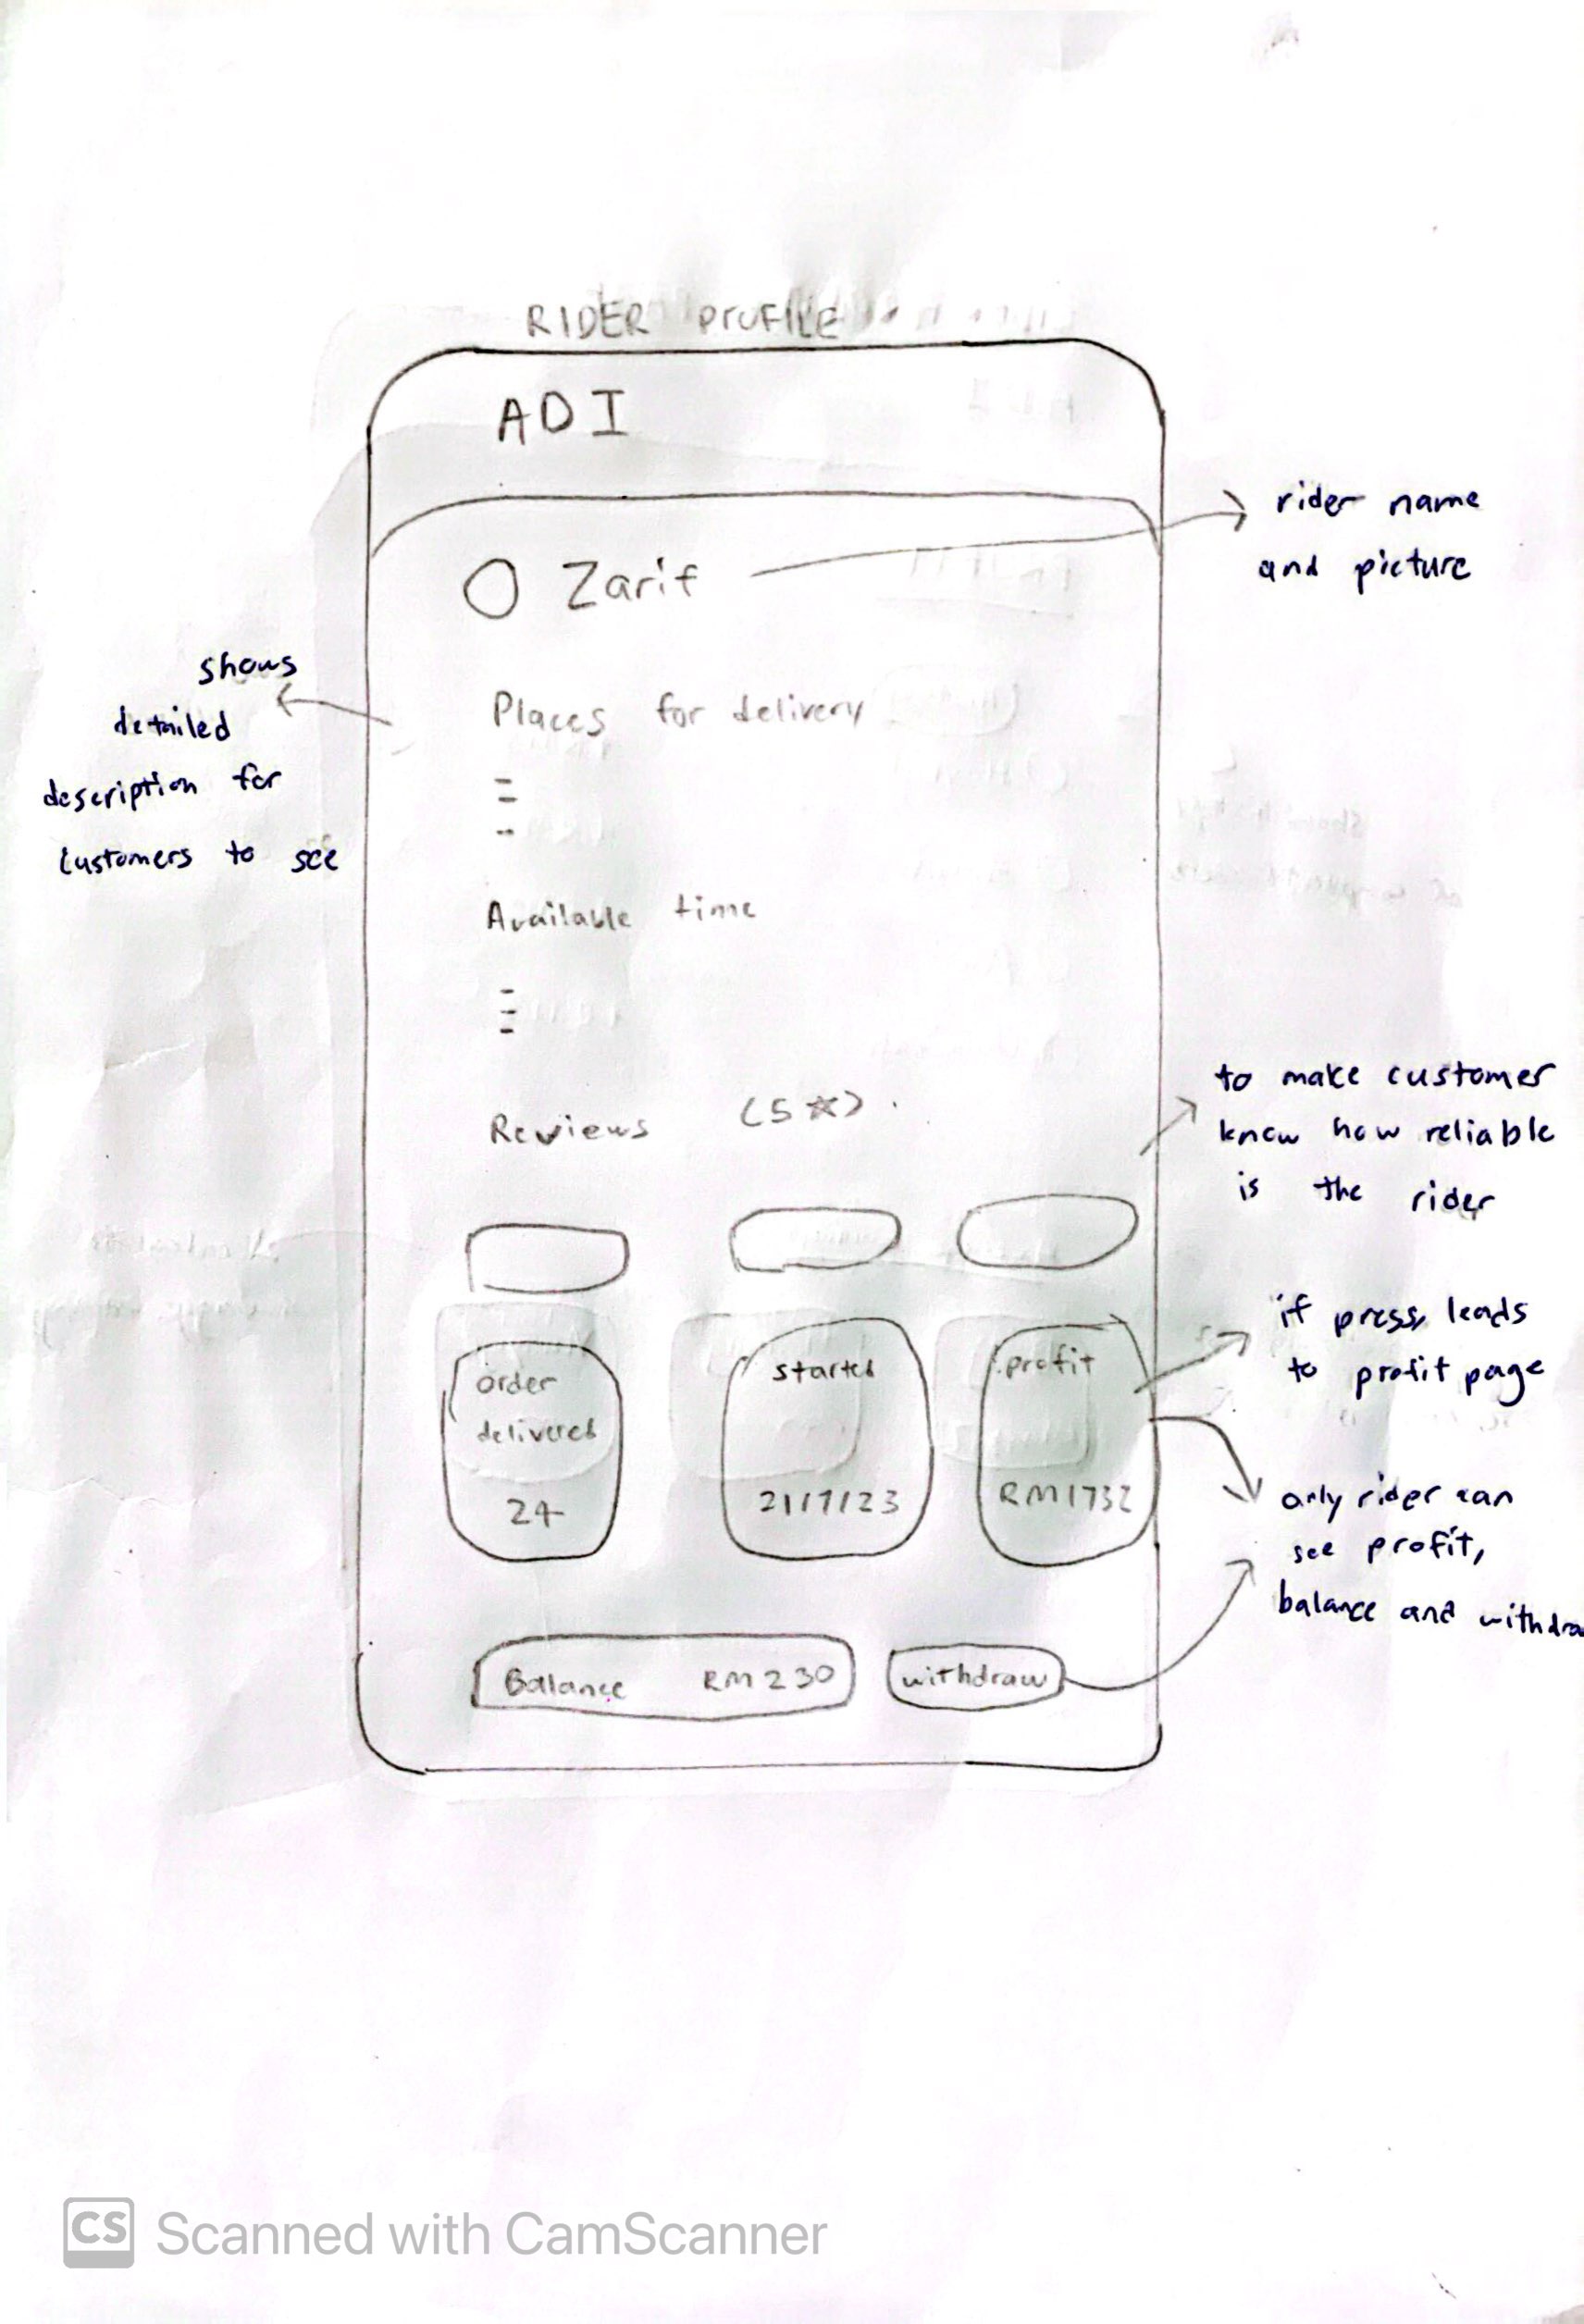 RIDER PROFILE
ADI
Zarif
rider name
and picture
shows
detailed
description for
customers to see
Places for delivery
Available time
Reviews (5☆)
to make customer
know how reliable
is the rider
order
delivered
24
started
21/7/23
profit
RM1732
if press, leads
to profit page
only rider can
see profit,
balance and withdra
Ballance RM230
withdraw
CS Scanned with CamScanner